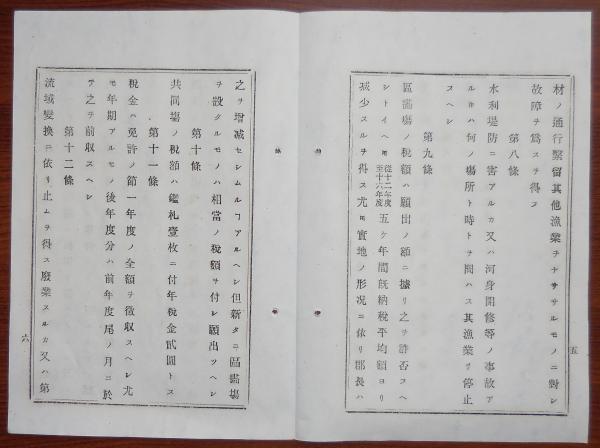 材ノ通行繋留其他漁業ヲナサザルモノニ對シ
故障ヲ爲スヲ得ス
第八條
水利堤防ニ害アルカ又ハ河身開修等ノ事故ア
ルキハ何ノ場所ト時トヲ問ハス其漁業ヲ停止
スヘシ
第九條
區畵塲ノ税額ハ願出ノ額ニ據リ之ヲ許否スヘ
シトイヘ𪜈 從十二年度至十六年度 五ケ年間既納税平均額ヨリ
減少スルヲ得ス尤𪜈實地ノ形況ニ依リ郡長ハ
五
之ヲ増减セシムルヿアルヘシ但新タニ區畵塲
ヲ設クルモノハ相當ノ税額ヲ付シ願出ツヘシ
第十條
共同塲ノ税額ハ鑑札壹枚ニ付年税金貳圓トス
第十一條
税金ハ免許ノ節一年度ノ全額ヲ徴収スヘシ尤
モ年期アルモノヽ後年度分ハ前年度尾ノ月ニ於
テ之ヲ前収スヘシ
第十二條
流域變換ニ依リ止ムヲ得ス廢業スルカ又ハ第
六